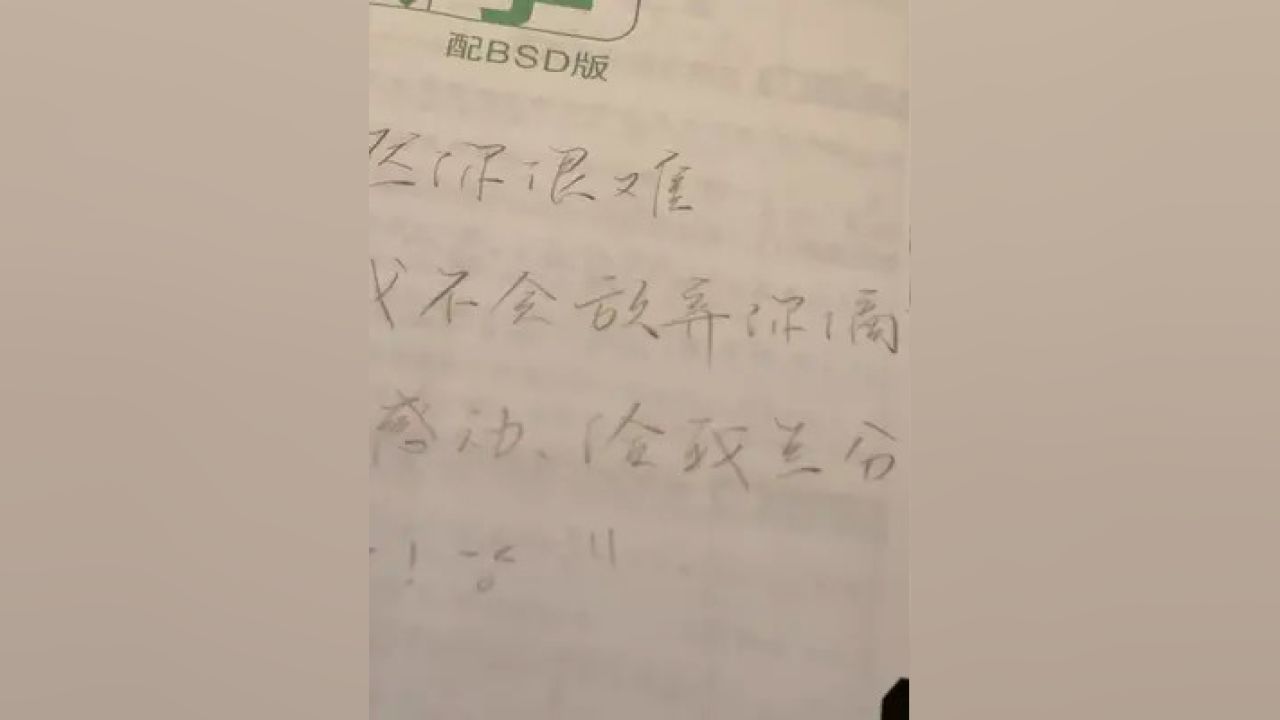 配BSD版
然你很难
我不会放弃你
感动、给我点分
!